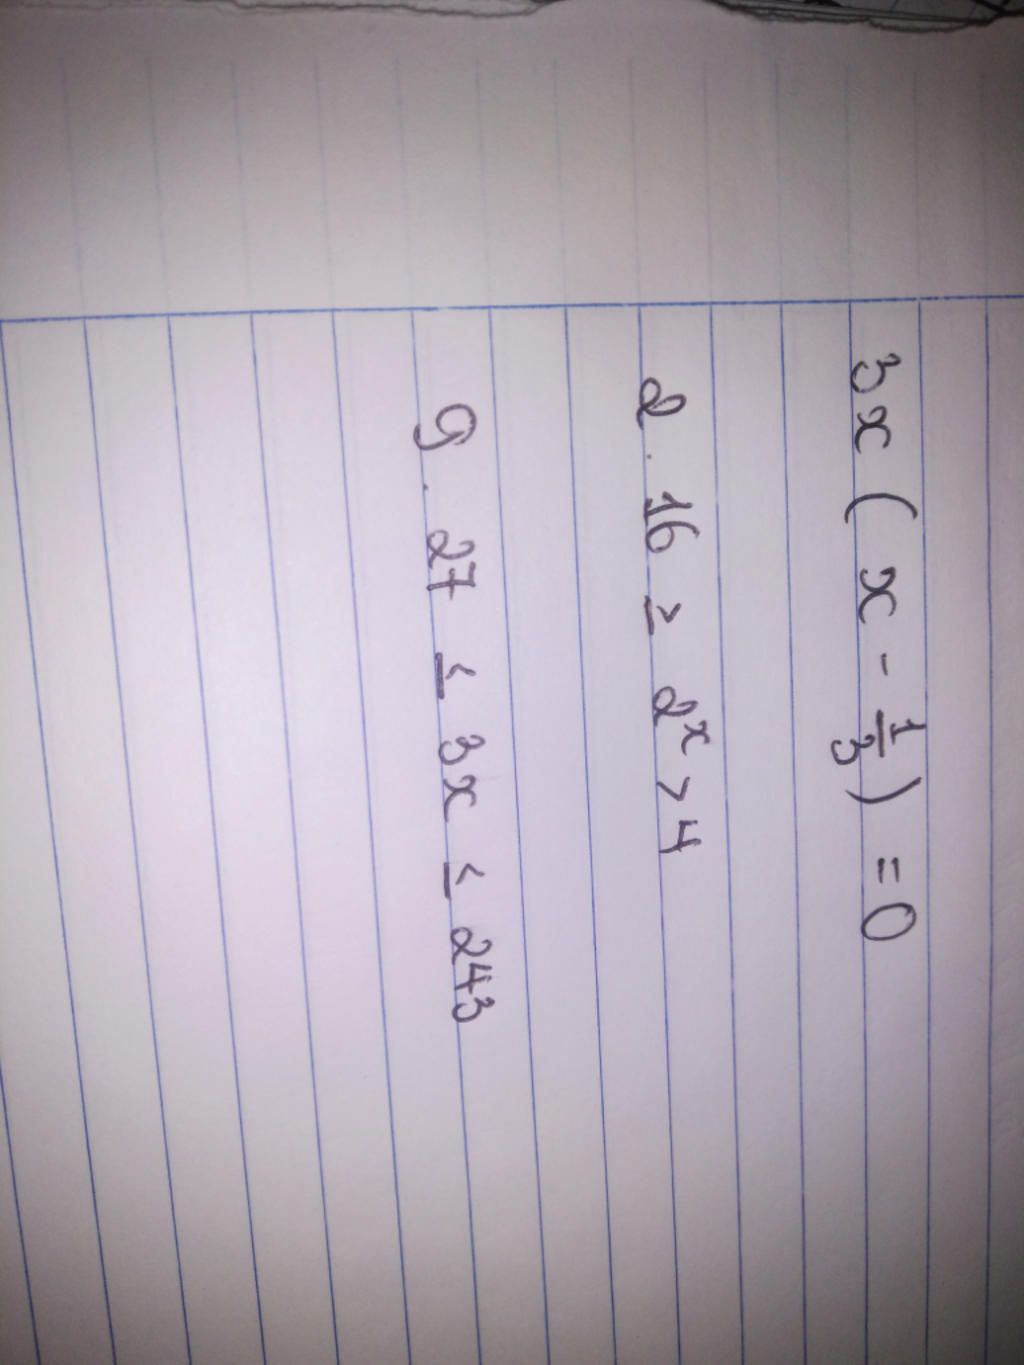 3x ( x - 1/3 ) = 0
2 . 16 ≥ 2^x > 4
9 . 27 ≤ 3x ≤ 243